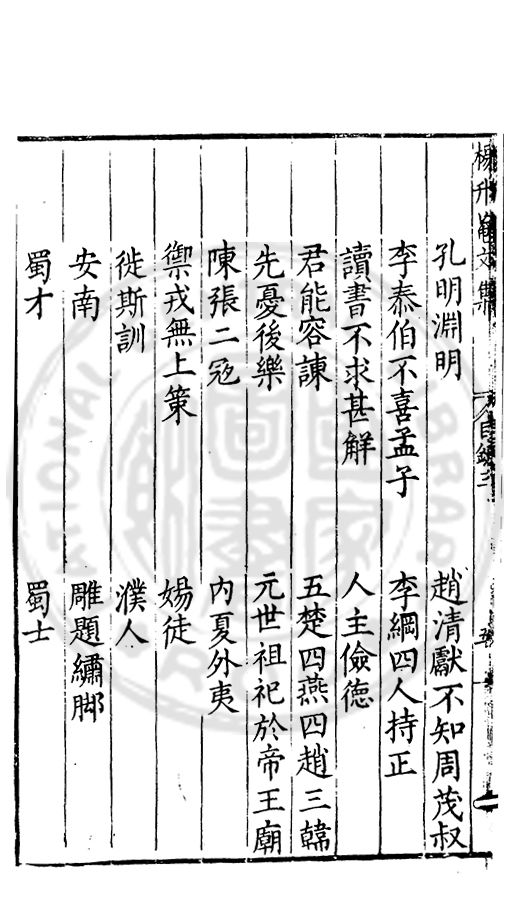 孔明淵明　趙清獻不知周茂叔
李泰伯不喜孟子　李綱四人持正
讀書不求甚解　人主儉德
君能容諫　五楚四燕四趙三韓
先憂後樂　元世祖祀於帝王廟
陳張二冦　內夏外夷
禦戎無上策　媵徒
徙斯訓　濮人
安南　雕題繡脚
蜀才　蜀士